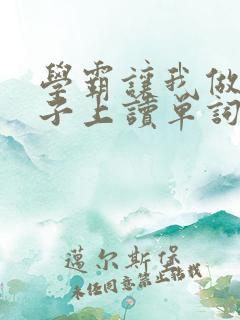 學霸讓我做
子上讀單詞
蓮尔斯堡
未经同意禁止转载